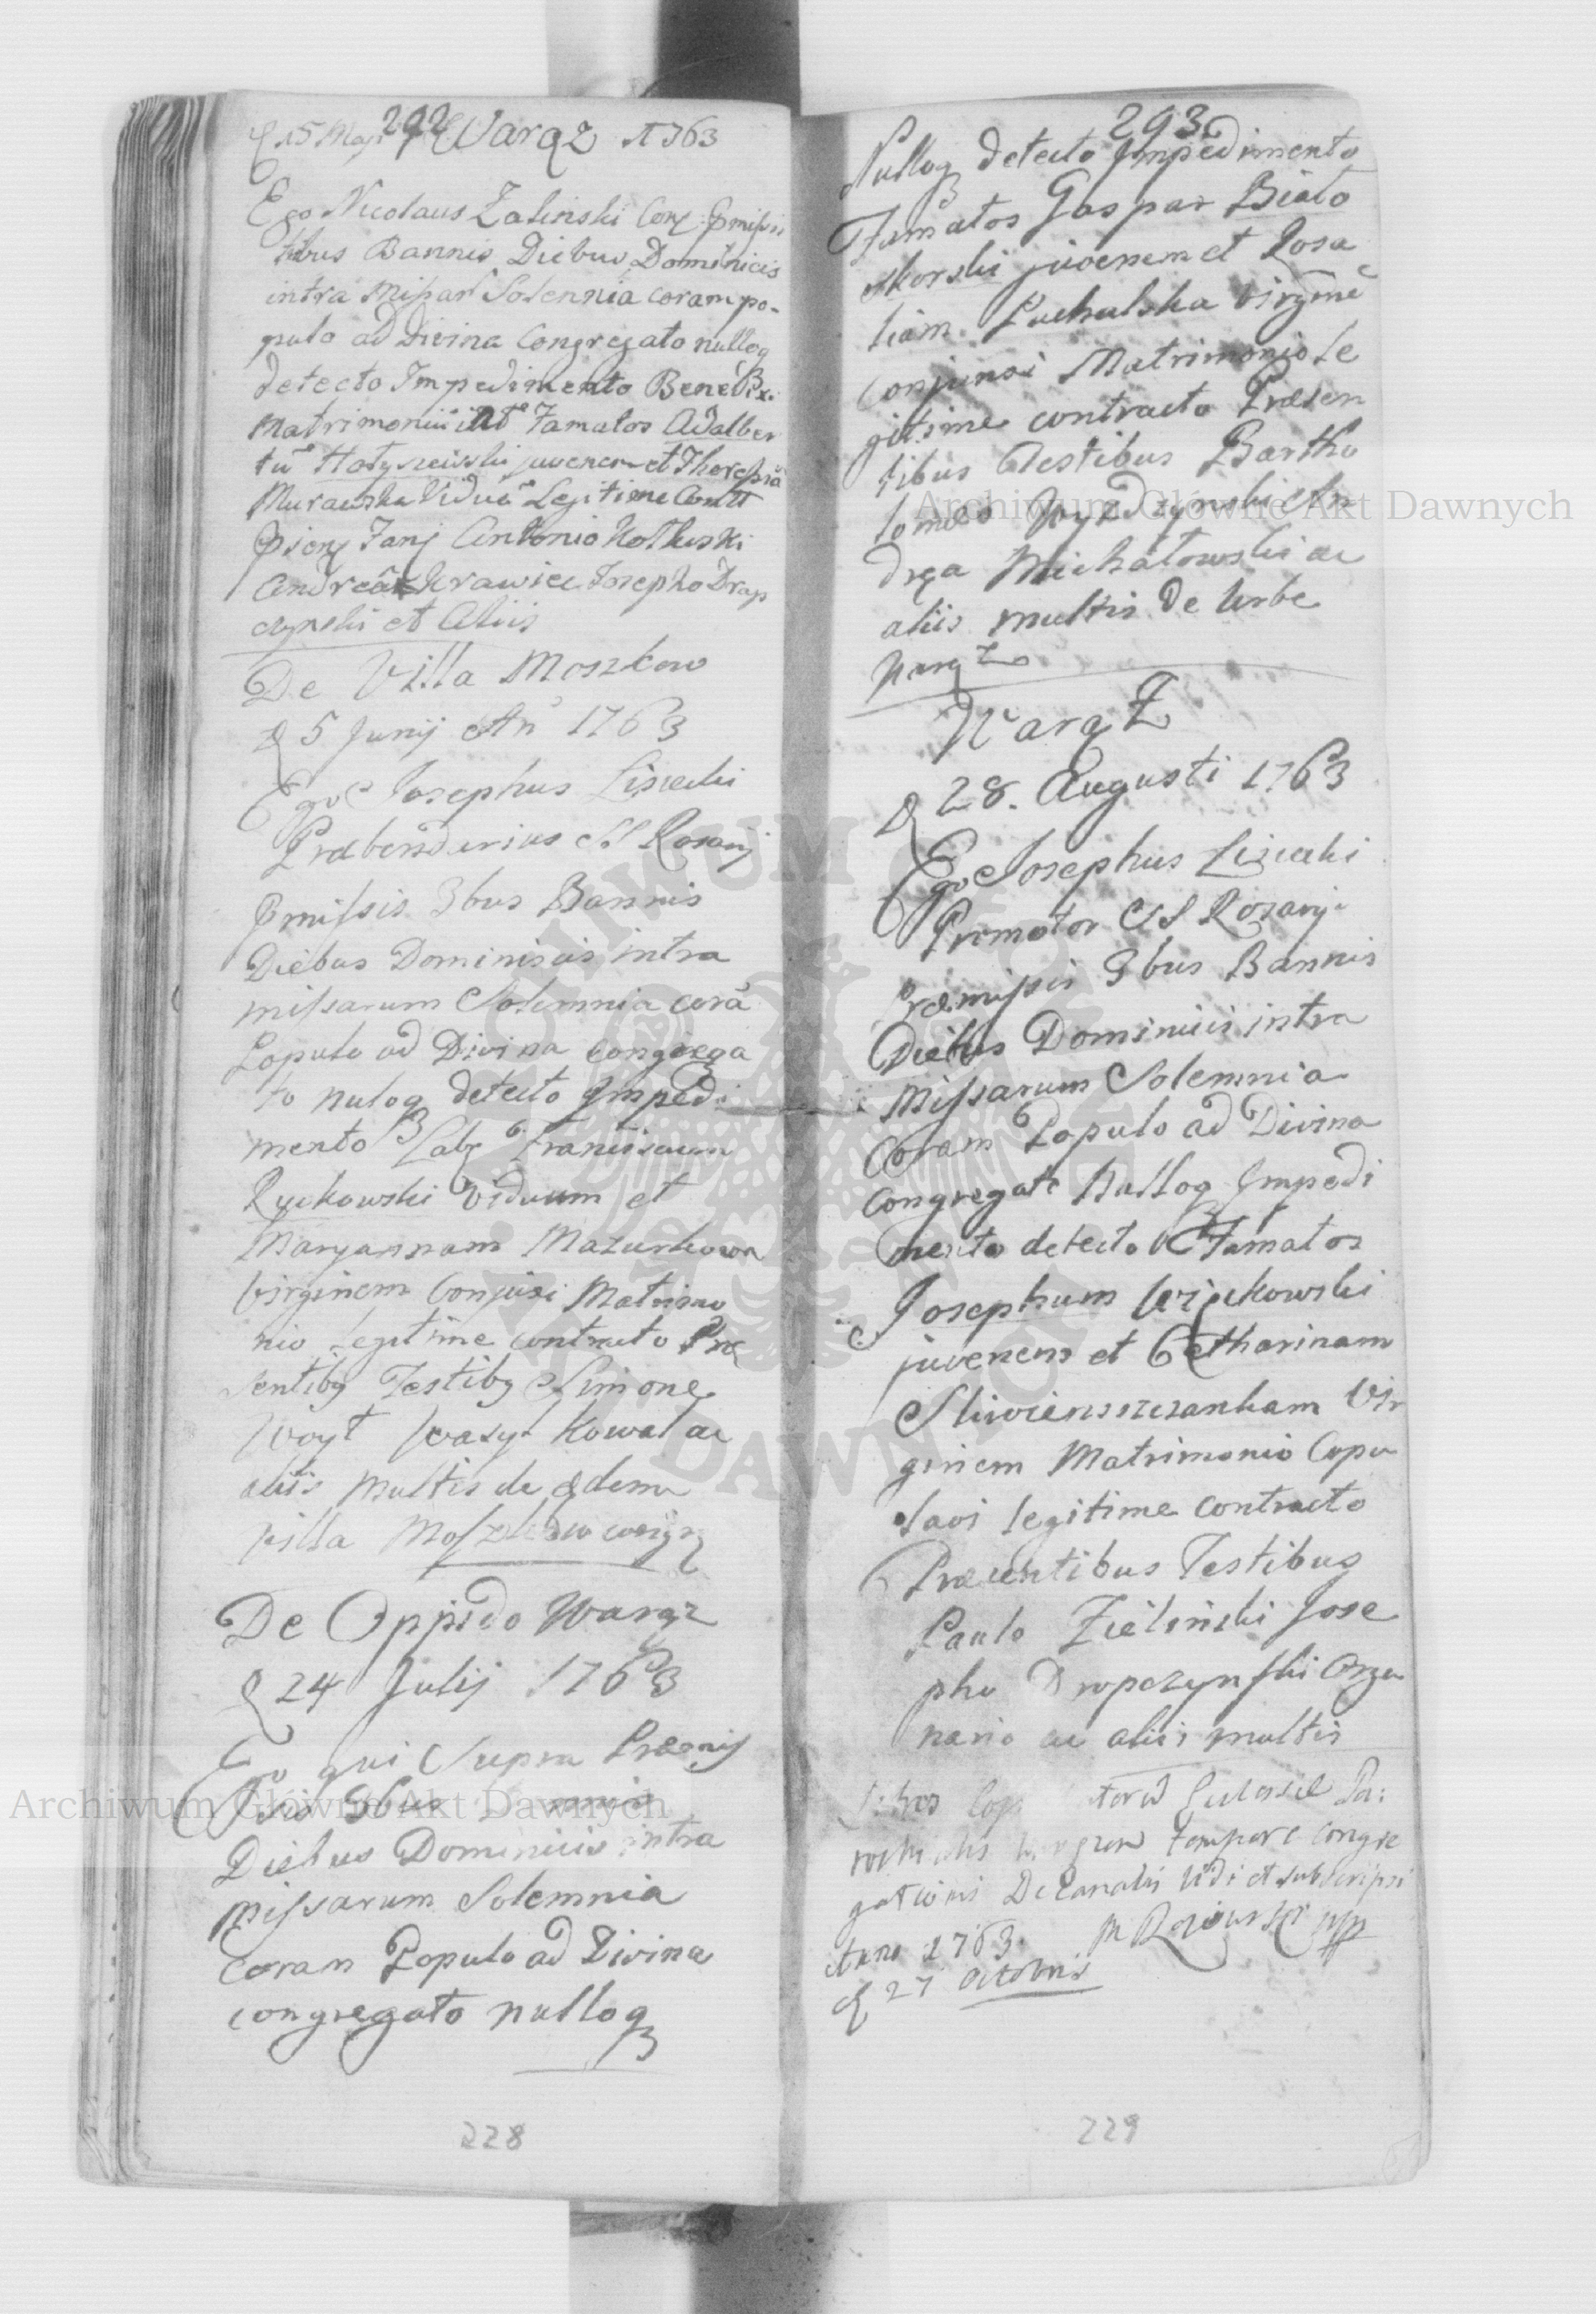 292
15 Maji Waręz 1763
Ego Nicolaus Zalinski Comm pmissis
tribus Bannis Diebus Dominicis
intra Missar Solennia coram po-
pulo ad Divina Congregato nulloq
detecto Impedimento Benedix:
Matrimoniu int Famatos Adalber
tu juvenem et Theresia
Murawska Vidua Legitime Contr
Antonio Kotluski
Andrea Krawiec Josepho Drap
czynski et Aliis
De Villa Moszkow
D 5 Junij An 1763
Ego Josephus Lisiecki
Præbendarius SS Rosarij
Pmissis 3bus Bannis
Diebus Dominicis intra
missarum Solemnia corā
Populo ad Divina congrega
to nuloq detecto Impedi
mento Lab Franciscum
Ryckowski Viduum et
Maryannam Mazurkowa
Virginem Conjūxi Matrimo
nio legitime contracto Præ
sentibq Testibq Simone
Woyt Wasyl Kowal ac
aliis Multis de Edem
villa Moszkow
De Oppido Waręz
D 24 Julij 1763
Ego qui Supra Præmis
sis 3bus
Diebus Dominicis intra
missarum Solemnia
Coram Populo ad Divina
congregato nulloq
228
293
Nulloq detecto Impedimento
Famatos Gaspar Biało
skorski juvenem et Rosa
liam Puchalska Virgine
Conjunxi Matrimonio Le
gitime contracto Præsen
tibus Testibus Bartho
lomeo Wyzdzynski An
drea Michałowski ac
aliis multis de Urbe
Waręz
Waręz
D 28. Augusti 1763
Ego Josephus Lisiecki
Promotor SS Rozarij
Præmissis 3bus Bannis
Diebus Dominicis intra
Missarum Solemnia
Coram Populo ad Divina
Congregato Nulloq Impedi
mento detecto Famatos
Josephum
juvenem et Catharinam
Vir
ginem Matrimonio Copu
lavi legitime contracto
Præsentibus Testibus
Paulo Zielinski Jose
pho Dropczynski Orga
nario ac aliis multis
Ecclesiæ Pa:
rochialis tempore Congre
gationis Decanalis Vidi et subscripsi
Anno 1763.
D 27 Octobris
229
Archiwum Główne Akt Dawnych
Archiwum Główne Akt Dawnych